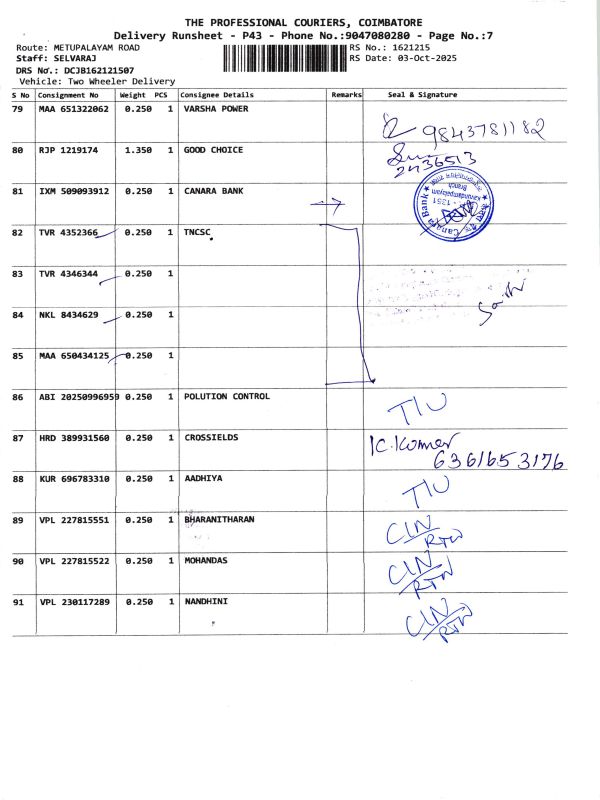 THE PROFESSIONAL COURIERS, COIMBATORE
Delivery Runsheet - P43 - Phone No.:9047080280 - Page No.:7
Route: METUPALAYAM ROAD RS No.: 1621215
Staff: SELVARAJ RS Date: 03-Oct-2025
DRS No.: DCJB162121507
Vehicle: Two Wheeler Delivery
S No Consignment No Weight PCS Consignee Details Remarks Seal & Signature
79 MAA 651322062 0.250 1 VARSHA POWER 9843781182
80 RJP 1219174 1.350 1 GOOD CHOICE 2436513
81 IXM 509093912 0.250 1 CANARA BANK Canara Bank
82 TVR 4352366 0.250 1 TNCSC
83 TVR 4346344 0.250 1
84 NKL 8434629 0.250 1
85 MAA 650434125 0.250 1
86 ABI 20250996959 0.250 1 POLUTION CONTROL TIU
87 HRD 389931560 0.250 1 CROSSIELDS K.Kumer
6361653176
88 KUR 696783310 0.250 1 AADHIYA TIU
89 VPL 227815551 0.250 1 BHARANITHARAN CIN/RTN
90 VPL 227815522 0.250 1 MOHANDAS CIN/RTN
91 VPL 230117289 0.250 1 NANDHINI CIN/RTN